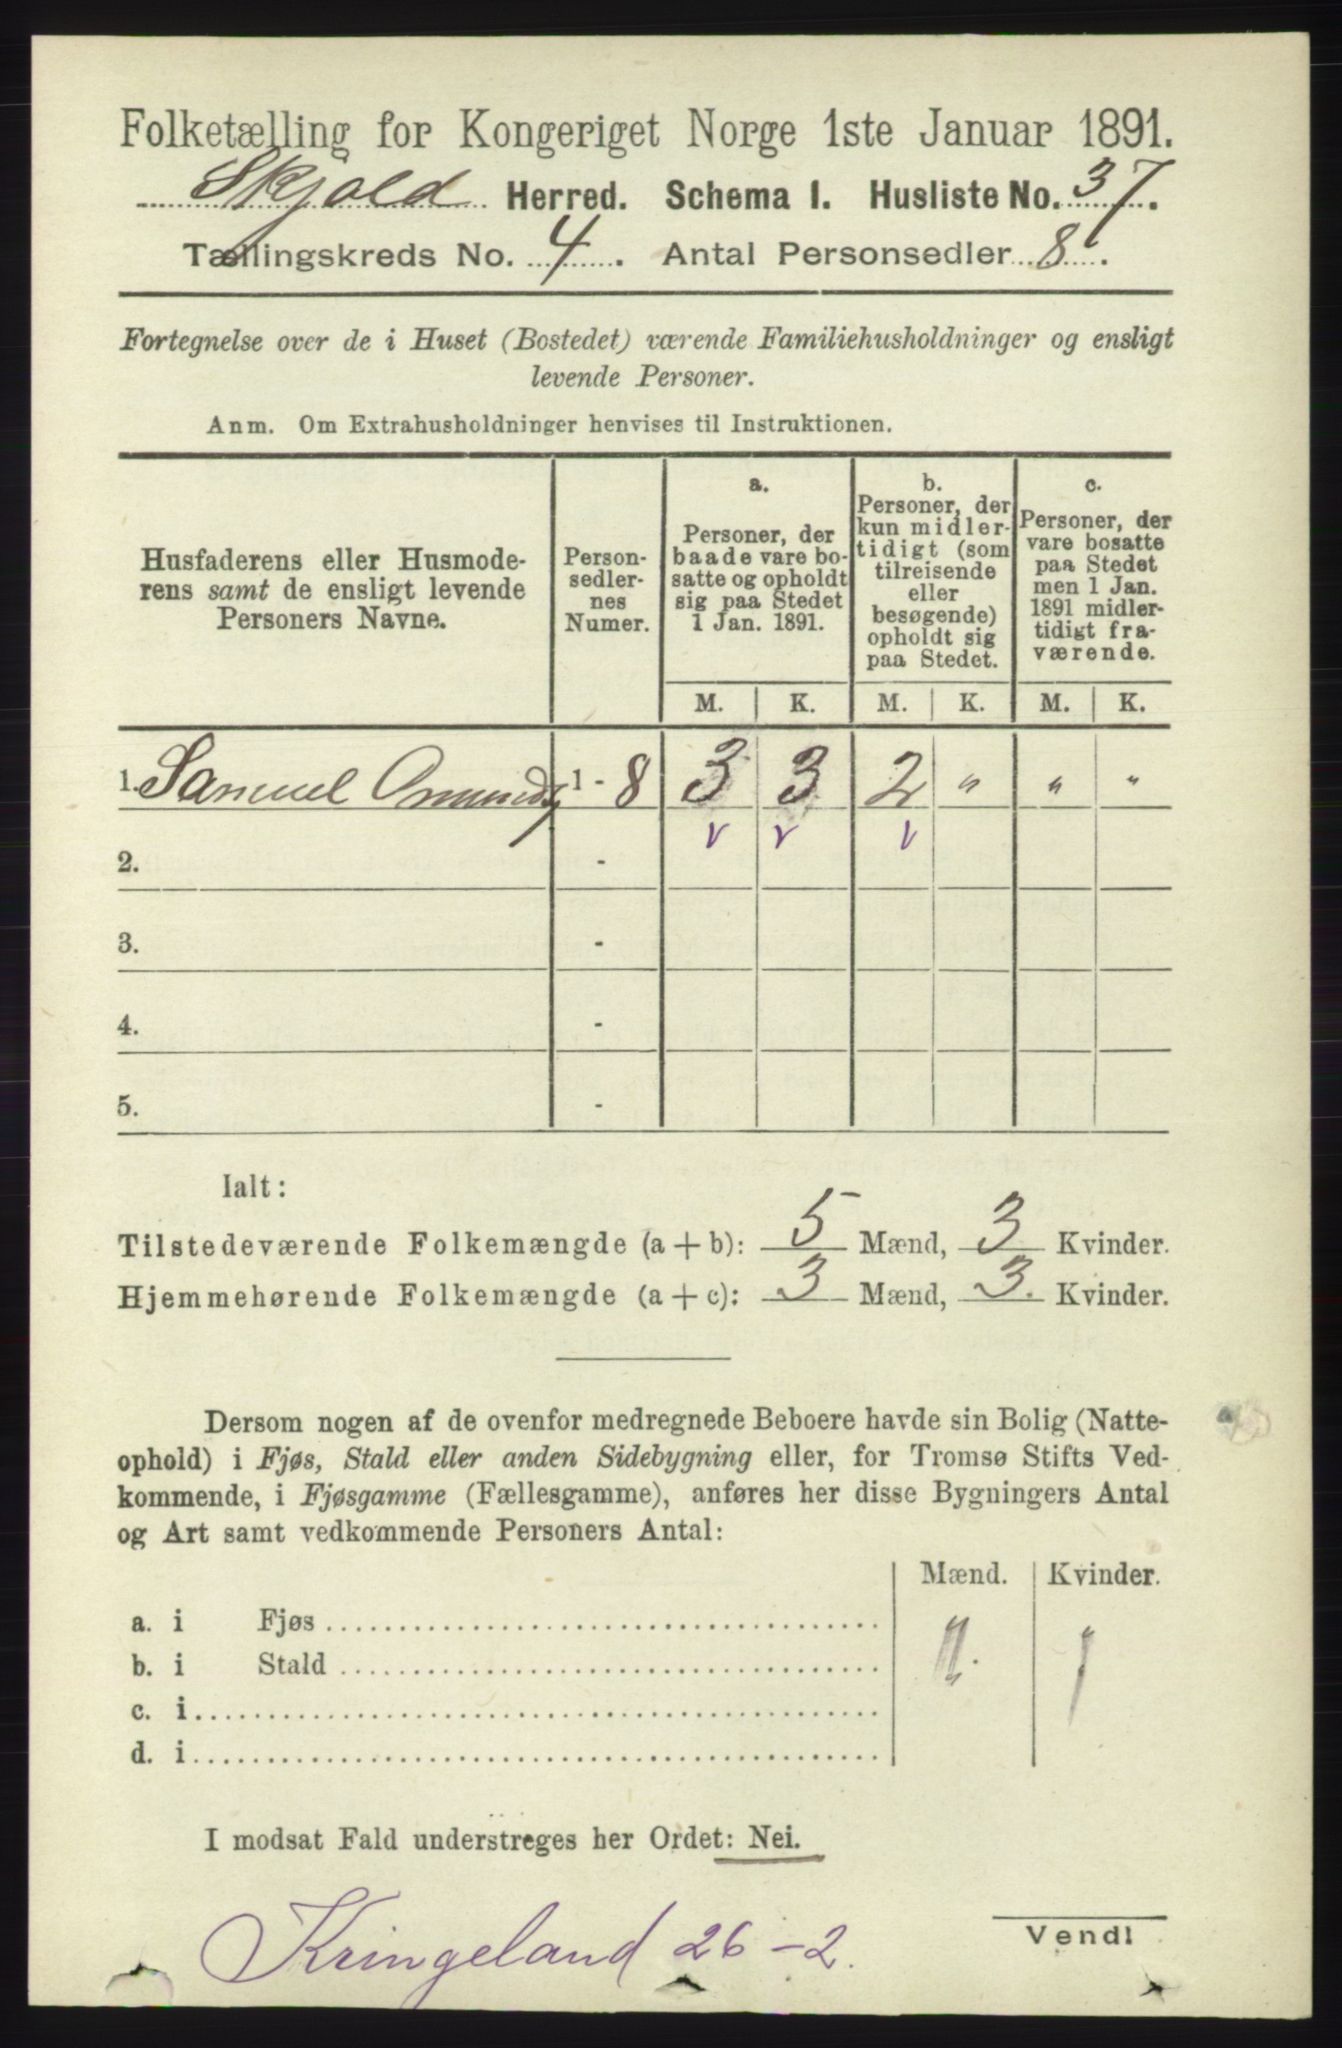 Folketælling for Kongeriget Norge 1ste Januar 1891.
Skjold Herred. Schema I. Husliste No. 37.
Tællingskreds No. 4. Antal Personsedler 8.
Fortegnelse over de i Huset (Bostedet) værende Familiehusholdninger og ensligt
levende Personer.
Anm. Om Extrahusholdninger henvises til Instruktionen.
Husfaderens eller Husmode-
rens samt de ensligt levende
Personers Navne.
Person-
sedler-
nes
Numer.
a.
Personer, der
baade vare bo-
satte og opholdt
sig paa Stedet
1 Jan. 1891.
b.
Personer, der
kun midler-
tidigt (som
tilreisende
eller
besøgende)
opholdt sig
paa Stedet.
c.
Personer, der
vare bosatte
paa Stedet
men 1 Jan.
1891 midler-
tidigt fra-
værende.
M. K. M. K. M. K.
1. Samuel 1 - 8 3 3 2 " " "
2. - v v v
3. -
4. -
5. -
Ialt:
Tilstedeværende Folkemængde (a + b): 5 Mænd, 3 Kvinder.
Hjemmehørende Folkemængde (a + c): 3 Mænd, 3. Kvinder.
Dersom nogen af de ovenfor medregnede Beboere havde sin Bolig (Natte-
ophold) i Fjøs, Stald eller anden Sidebygning eller, for Tromsø Stifts Ved-
kommende, i Fjøsgamme (Fællesgamme), anføres her disse Bygningers Antal
og Art samt vedkommende Personers Antal:
Mænd. Kvinder.
a. i Fjøs
b. i Stald
c. i
d. i
I modsat Fald understreges her Ordet: Nei.
Kringeland 26-2.
Vend!